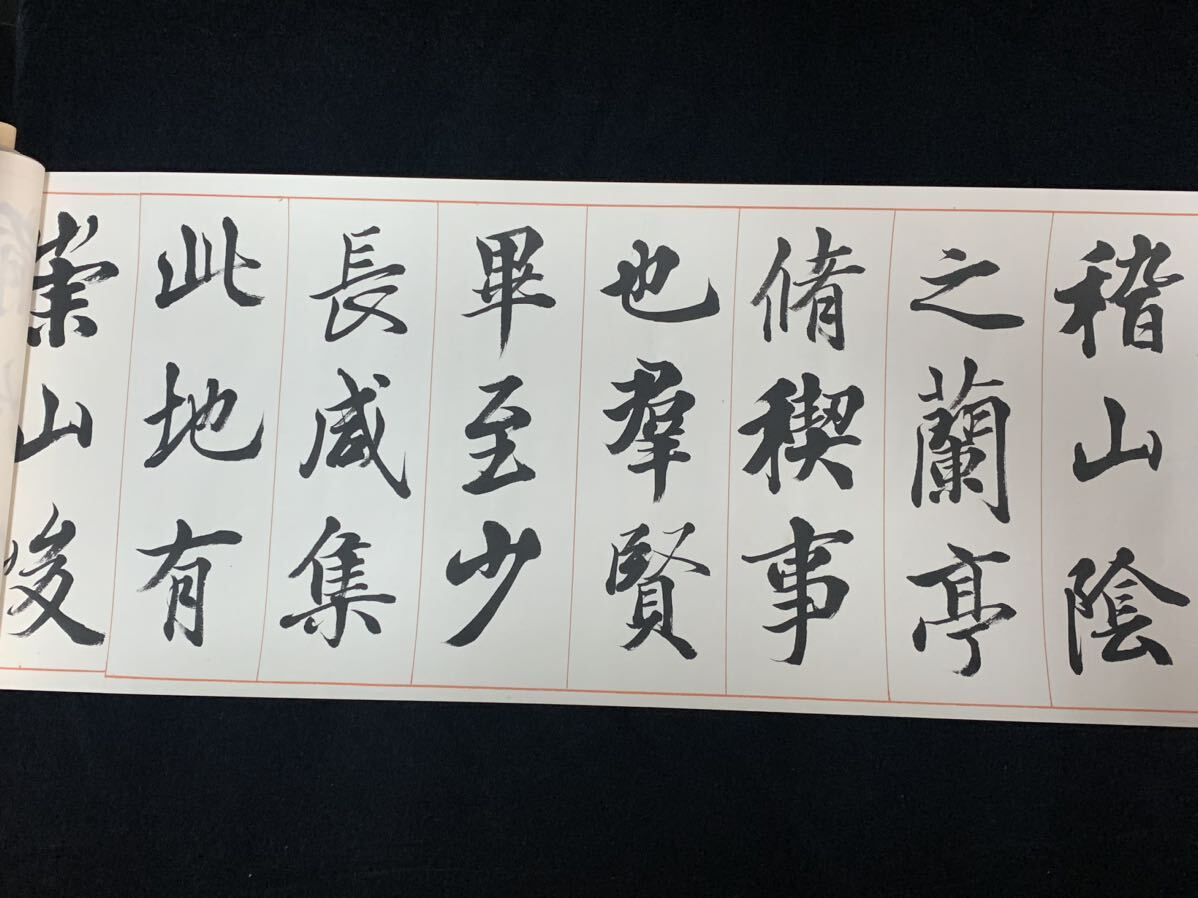 稽山陰
之蘭亭
脩稧事
也羣賢
畢至少
長咸集
此地有
崇山峻